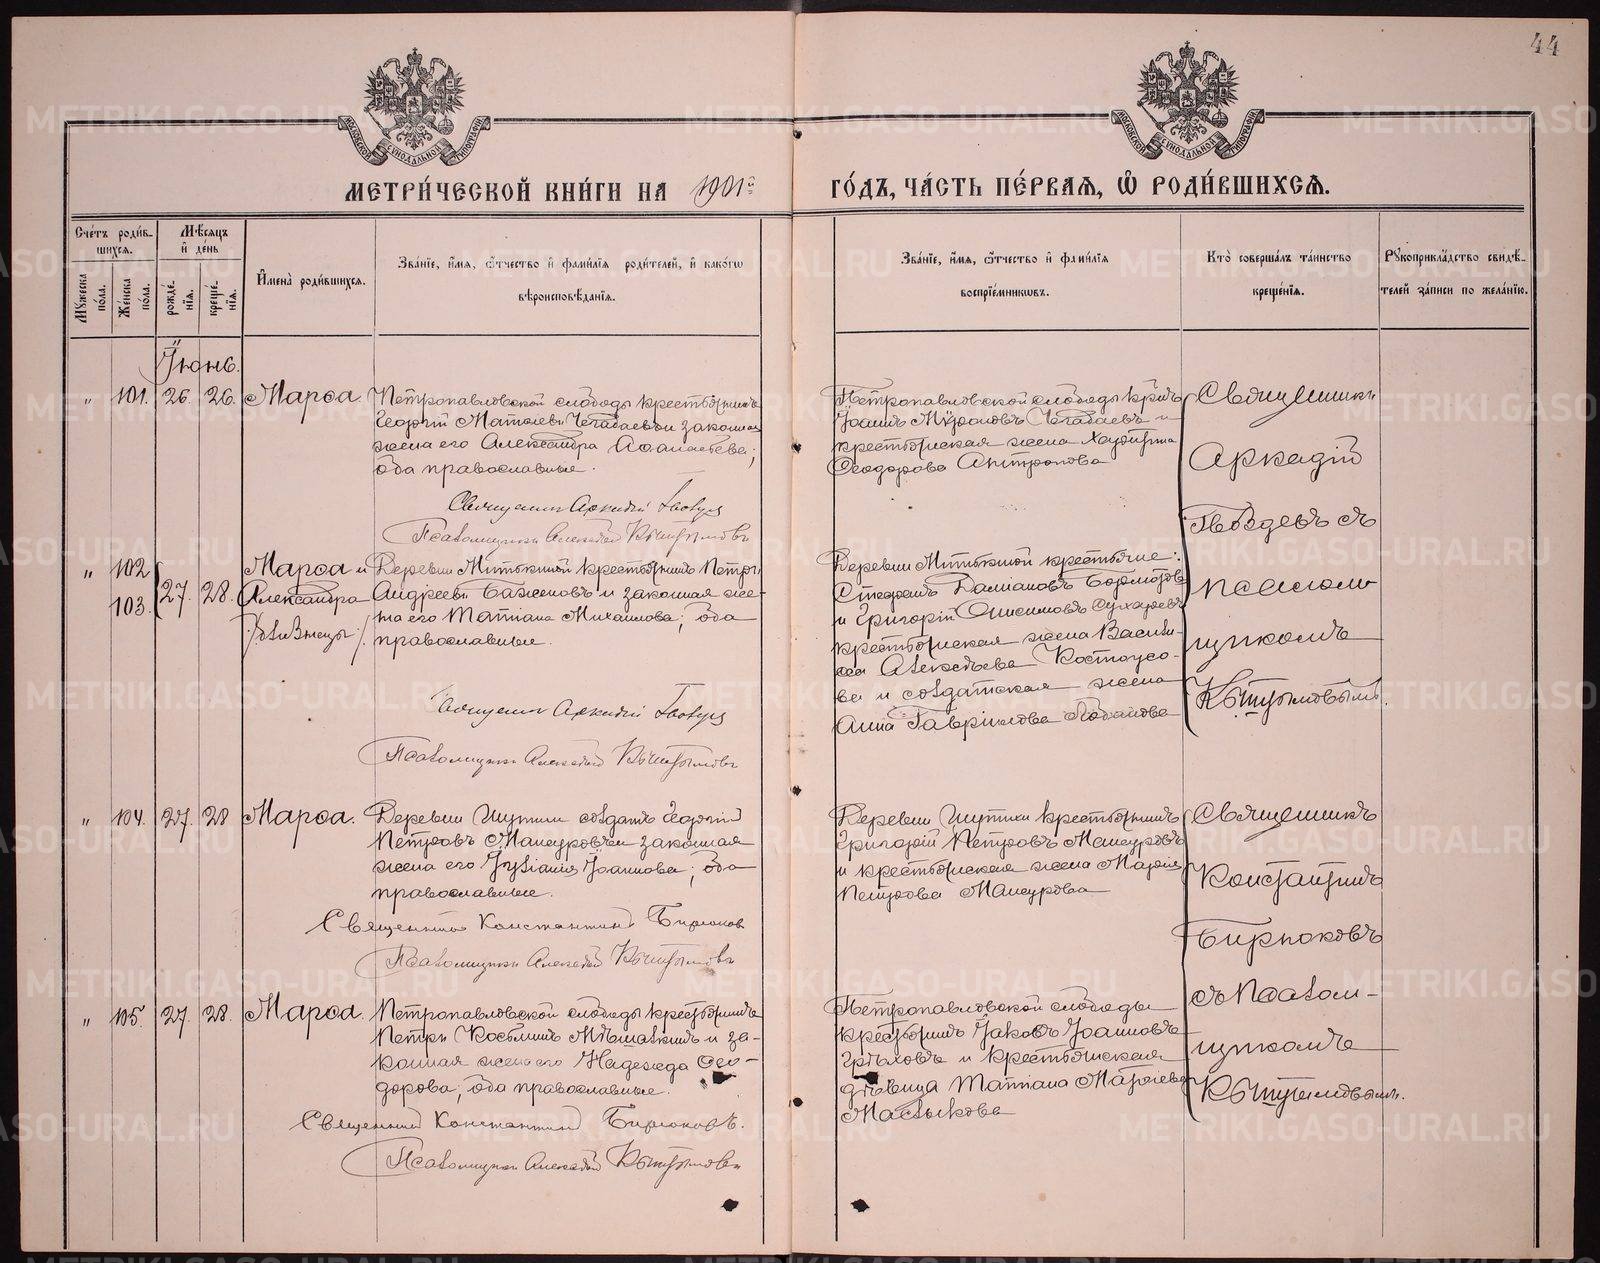 44
МЕТРИ́ЧЕСКОЙ КНИ́ГИ НА 1901й ГО́ДЪ, ЧА́СТЬ ПЕ́РВАЯ, Ѿ РОДИ́ВШИХСЯ.
Сче́тъ роди́вшихся.
Му́жеска по́ла.
Же́нска по́ла.
Мѣ́сяцъ и҆ де́нь
рожде́нїя.
креще́нїя.
И҆мена̀ роди́вшихся.
Зва́нїе, и҆́мя, ѻ҆́тчество и҆ фами́лїя роди́телей, и҆ како́гѡ
вѣроисповѣ́данїя.
Зва́нїе, и҆́мя, ѻ҆́тчество и҆ фами́лїя
воспрїе́мниковъ.
Кто̀ соверша́лъ та́инство
креще́нїя.
Рꙋкоприкла́дство свидѣ́-
телей за́писи по жела́нїю.
Іюнь.
" 101. 26. 26. Марѳа. Петропавловской слободы крестьянинъ
Георгій Матѳіевъ и законная
жена его Александра Аѳанасьева;
оба православные.
Священникъ Аркадій Гвоздевъ
Псаломщикъ Алексѣй Кыштымовъ
Петропавловской слободы
Іоаннъ и
крестьянская жена
Ѳеодорова Антропова
Священникъ
Аркадій
Гвоздевъ съ
псалом-
щикомъ
Кыштымовымъ.
" 102 103. 27. 28. Марѳа и
Александра
/:близнецы:/
Деревни крестьянинъ Петръ
Андреевъ Баженовъ и законная же-
на его Татіана Михаилова; оба
православные.
Священникъ Аркадій Гвоздевъ
Псаломщикъ Алексѣй Кыштымовъ
Деревни крестьяне:
Стефанъ Даміановъ
и Григорій Онисимовъ Сухаревъ
крестьянская жена Васили-
са Алексѣева Костоусо-
ва и солдатская жена
Анна Гавріилова Лобанова
" 104. 27. 28 Марѳа. Деревни солдатъ Георгій
Петровъ Мансуровъ и законная
жена его Іуліанія Іоаннова; оба
православные.
Священникъ Константинъ Бирюковъ
Псаломщикъ Алексѣй Кыштымовъ
Деревни крестьянинъ
Григорій Петровъ Мансуровъ
и крестьянская жена Марія
Петрова Мансурова
Священникъ
Константинъ
Бирюковъ
съ псалом-
щикомъ
Кыштымовымъ.
" 105. 27. 28. Марѳа. Петропавловской слободы крестьянинъ
Петръ Косьминъ и за-
конная жена его Надежда Ѳео-
дорова; оба православные.
Священникъ Константинъ Бирюковъ.
Псаломщикъ Алексѣй Кыштымовъ
Петропавловской слободы
крестьянинъ Іаковъ Іоанновъ
Грѣховъ и крестьянская
дѣвица Татіана Матѳіева
Маслыкова